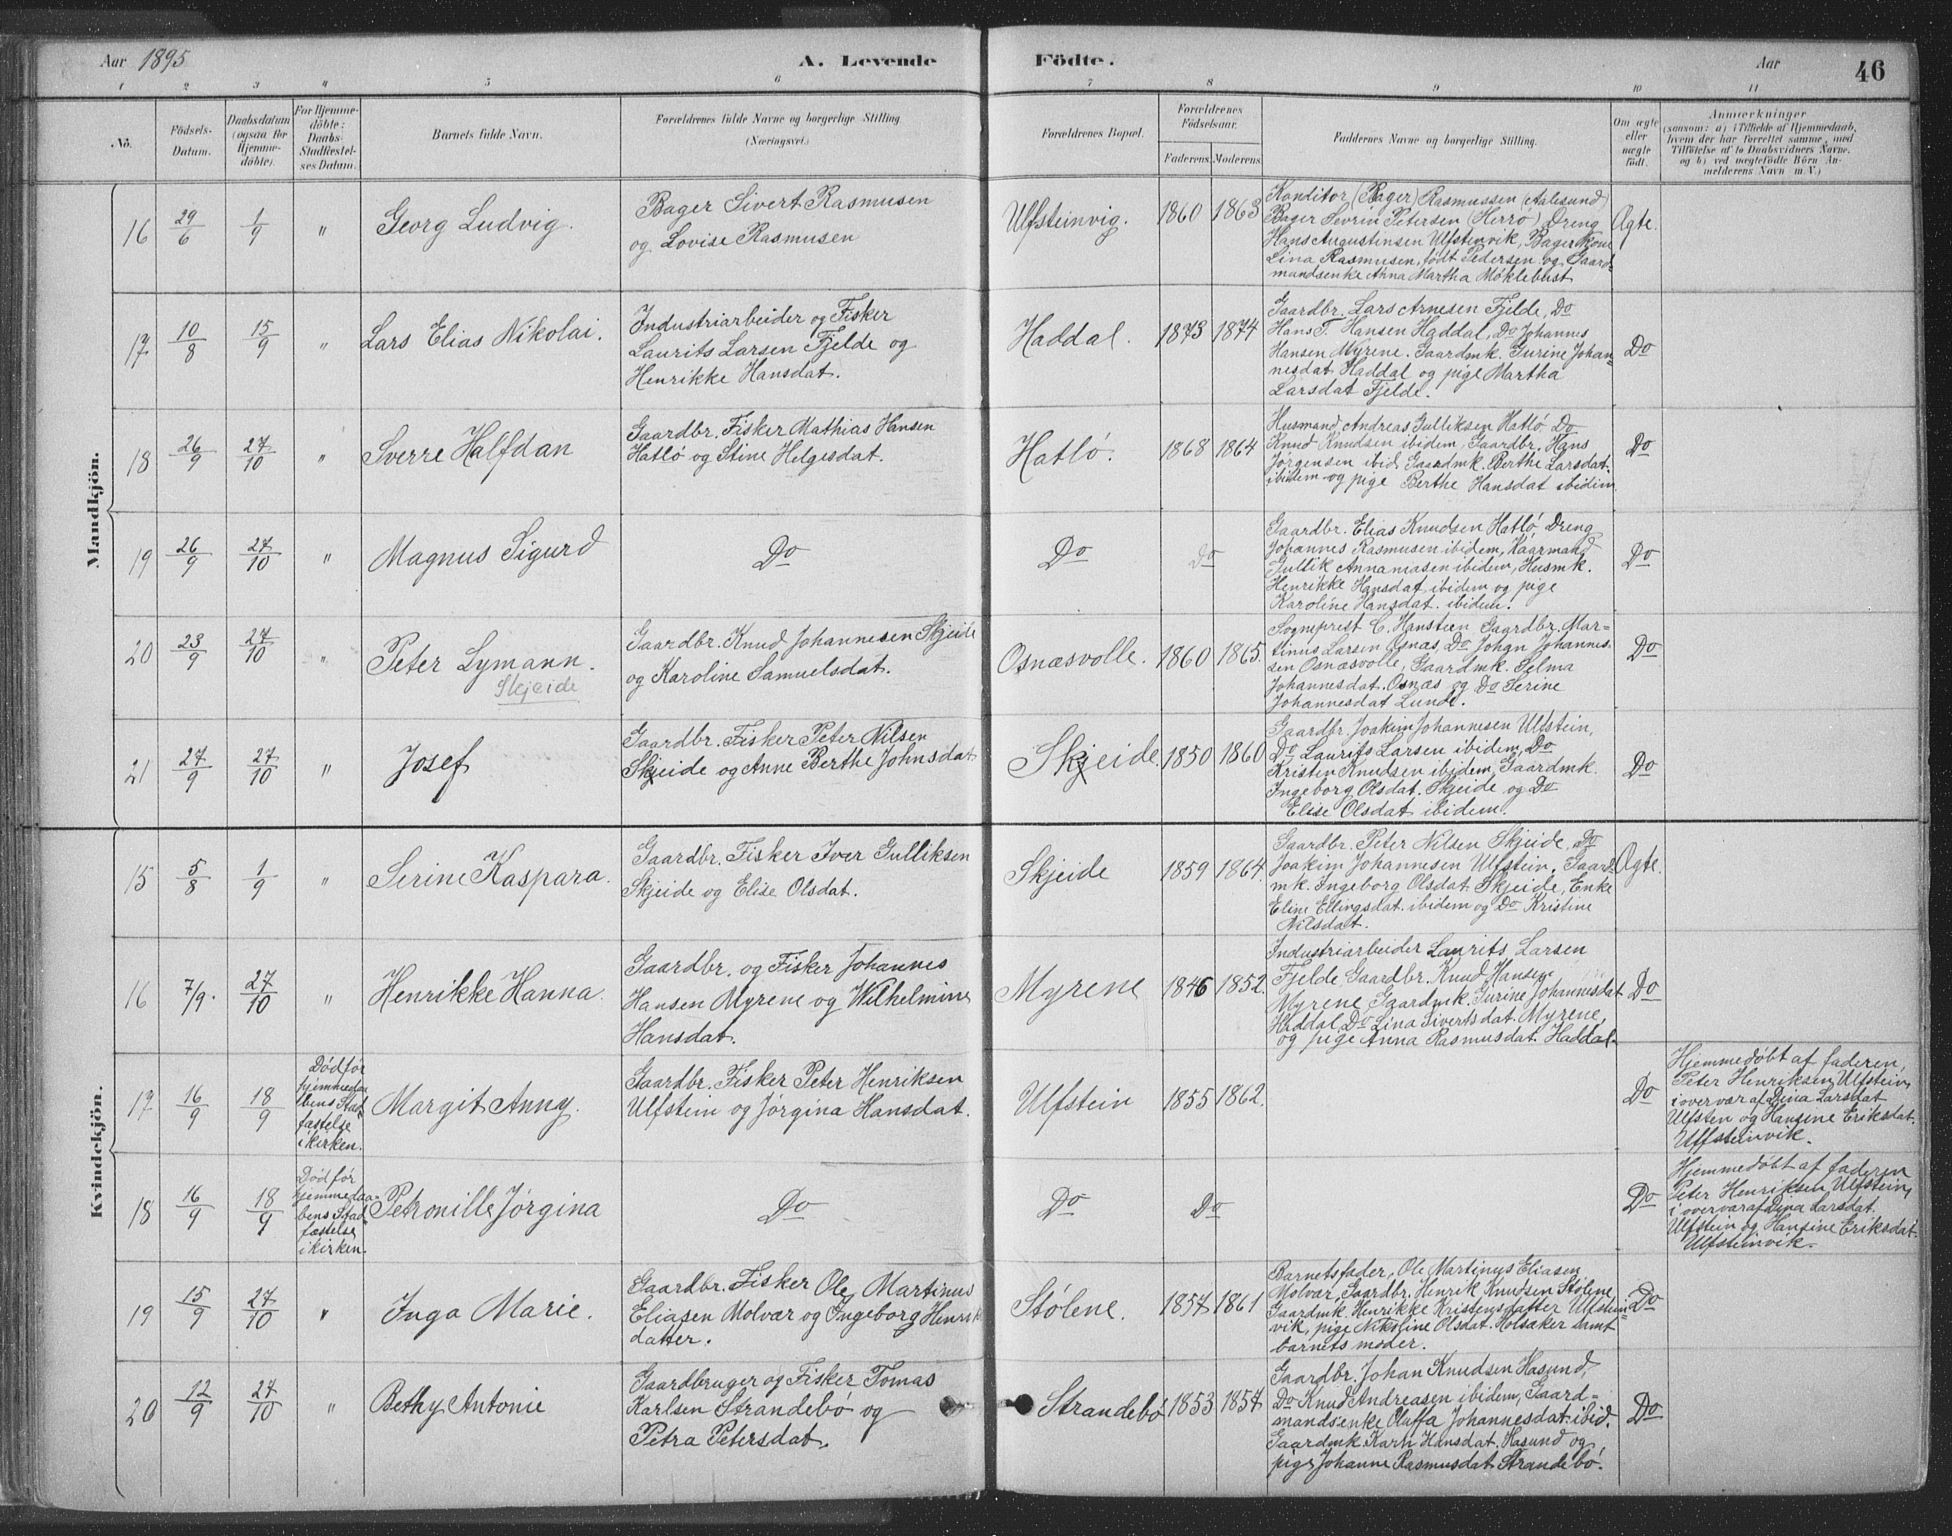 Aar 1895 A. Levende Födte. Aar 46
1 2 3 4 5 6 7 8 9 10 11
No. Födsels-Datum. Daabsdatum (ogsaa for Hjemme-döbte). For Hjemme-döbte: Daabs-Stadfestel-ses Datum. Barnets fulde Navn. Forældrenes fulde Navne og borgerlige Stilling (Næringsvei.) Forældrenes Bopæl. Forældrenes Födselsaar. Faderens. Moderens. Faddernes Navne og borgerlige Stilling. Om ægte eller uægte födt. Anmærkninger
(saasom: a) i Tilfælde af Hjemmedaab, hvem der har forrettet samme, med Tilföielse af to Daabsvidners Navne, og b) ved uægtefödte Börn An-melderens Navn m. V.)
Mandkjön.
16 29/6 1/9 " Georg Ludvig.
Bager Sivert Rasmusen
og Lovise Rasmusen
Ulfsteinvig. 1860 1863
Konditor (Bager) Rasmussen (Aalesund)
Bager Sevrin Petersen (Herrø) Dreng
Hans Augustinsen Ulfstenvik, Bagerkone
Lina Rasmusen, født Pedersen og Gaard=
mandsenke Anna Martha Møklebust
Ægte.
17 10/8 15/9 " Lars Elias Nikolai.
Industriarbeider og Fisker
Laurits Larsen Fjelde og
Henrikke Hansdat.
Haddal. 1873 1874
Gaardbr. Lars Arnesen Fjelde, Do
Hans T. Hansen Haddal, Do Johannes
Hansen Myrene. Gaardmk. Gurine Johan=
nesdat Haddal og pige Martha
Larsdat Fjelde.
Do
18 26/9 27/10 " Sverre Halfdan
Gaardbr. Fisker Mathias Hansen
Hatlø og Stine Helgesdat.
Hatlø. 1868 1864
Husmand Andreas Gulliksen Hatlø Do
Knud Knudsen ibidem, Gaardbr. Hans
Jørgensen ibid, Gaardmk. Berthe Larsdat.
ibidem og pige Berthe Hansdat ibidem.
Do
19 26/9 27/10 " Magnus Sigurd
Do
Do Do
Gaardbr. Elias Knudsen Hatlø, Dreng
Johannes Rasmusen ibidem, Kaarmand
Gullik Annaniasen ibidem, Husmk.
Henrikke Hansdat ibidem og pige
Karoline Hansdat. ibidem.
Do
20 23/9 27/10 " Peter Lymann.
Skjeide
Gaardbr. Knud Johannesen Skjeide
og Karoline Samuelsdat.
Osnæsvolle. 1860 1865.
Sogneprest C. Hansteen Gaardbr. Mar=
tinus Larsen Osnæs, Do Johan Johannes=
sen Osnæsvolle, Gaardmk. Selma
Johannesdat. Osnæs og Do Serine
Johannesdat Lunde.
Do
21 27/9 27/10 " Josef
Gaardbr. Fisker Peter Nilsen
Skjeide og Anne Berthe Johnsdat
Skjeide. 1850 1860
Gaardbr. Joakim Johannesen Ulfstein,
Do Laurits Larsen ibidem, Do
Kristen Knudsen ibidem, Gaardmk.
Ingeborg Olsdat. Skjeide og Do
Elise Olsdat ibidem.
Do
Kvindekjön.
15 5/8 1/9 " Serine Kaspara.
Gaardbr. Fisker Iver Gulliksen
Skjeide og Elise Olsdat.
Skjeide 1859 1864.
Gaardbr. Peter Nilsen Skjeide, Do
Joakim Johannesen Ulfstein. Gaard=
mk. Ingeborg Olsdat. Skjeide, Enke
Eline Ellingsdat. ibidem og Do Kristine
Nilsdat.
Ægte.
16 7/9. 27/10 " Henrikke Hanna.
Gaardbr. og Fisker Johannes
Hansen Myrene og Wilhelmine
Hansdat.
Myrene 1846 1852.
Industriarbeider Laurits Larsen
Fjelde, Gaardbr. Knud Hansen
Myrene, Gaardmk. Gurine Johannesdat
Haddal, Do Lina Sivertsdat. Myrene,
og pige Anna Rasmusdat. Haddal.
Do
17 16/9 18/9
Død før
hjemmedaa
bens Stad
fæstelse
i kirken.
Margit Anny.
Gaardbr. Fisker Peter Henriksen
Ulfstein og Jørgina Hansdat.
Ulfstein 1855 1862.
Do
Hjemmedøbt af faderen,
Peter Henriksen Ulfstein,
i overvær af Dina Larsdat
Ulfsten og Hansine Eriksdat.
Ulfsteinvik.
18 16/9 18/9
Død før
hjemmedaa=
bens Stad
fæstelse
i kirken.
Petronille Jørgina
Do
Do Do
Do
Hjemmedøbt af faderen
Peter Henriksen Ulfstein,
i overvær af Dina Larsdat.
Ulfstein og Hansine Eriksdat.
Ulfsteinvik.
19 15/9 27/10 " Inga Marie.
Gaardbr. Fisker Ole Martinus
Eliasen Molvær og Ingeborg Henriks
datter.
Stølene. 1857 1861
Barnets fader, Ole Martinus Eliasen
Molvær, Gaardbr. Henrik Knudsen Stølene,
Gaardmk. Henrikke Kristensdatter Ulfstein=
vik, pige Nikoline Olsdat. Holsaker samt
barnets moder.
Do
20 12/9 27/10 " Bethy Antonie
Gaardbruger og Fisker Tomas
Karlsen Strandebø og
Petra Petersdat.
Strandebø 1853 1857
Gaardbr. Johan Knudsen Hasund,
Do Knud Andreasen ibidem, Gaard=
mandsenke Olaffa Johannesdat. ibid.
Gaardmk Karn Hansdat. Hasund og
pige Johanne Rasmusdat Strandebø.
Do